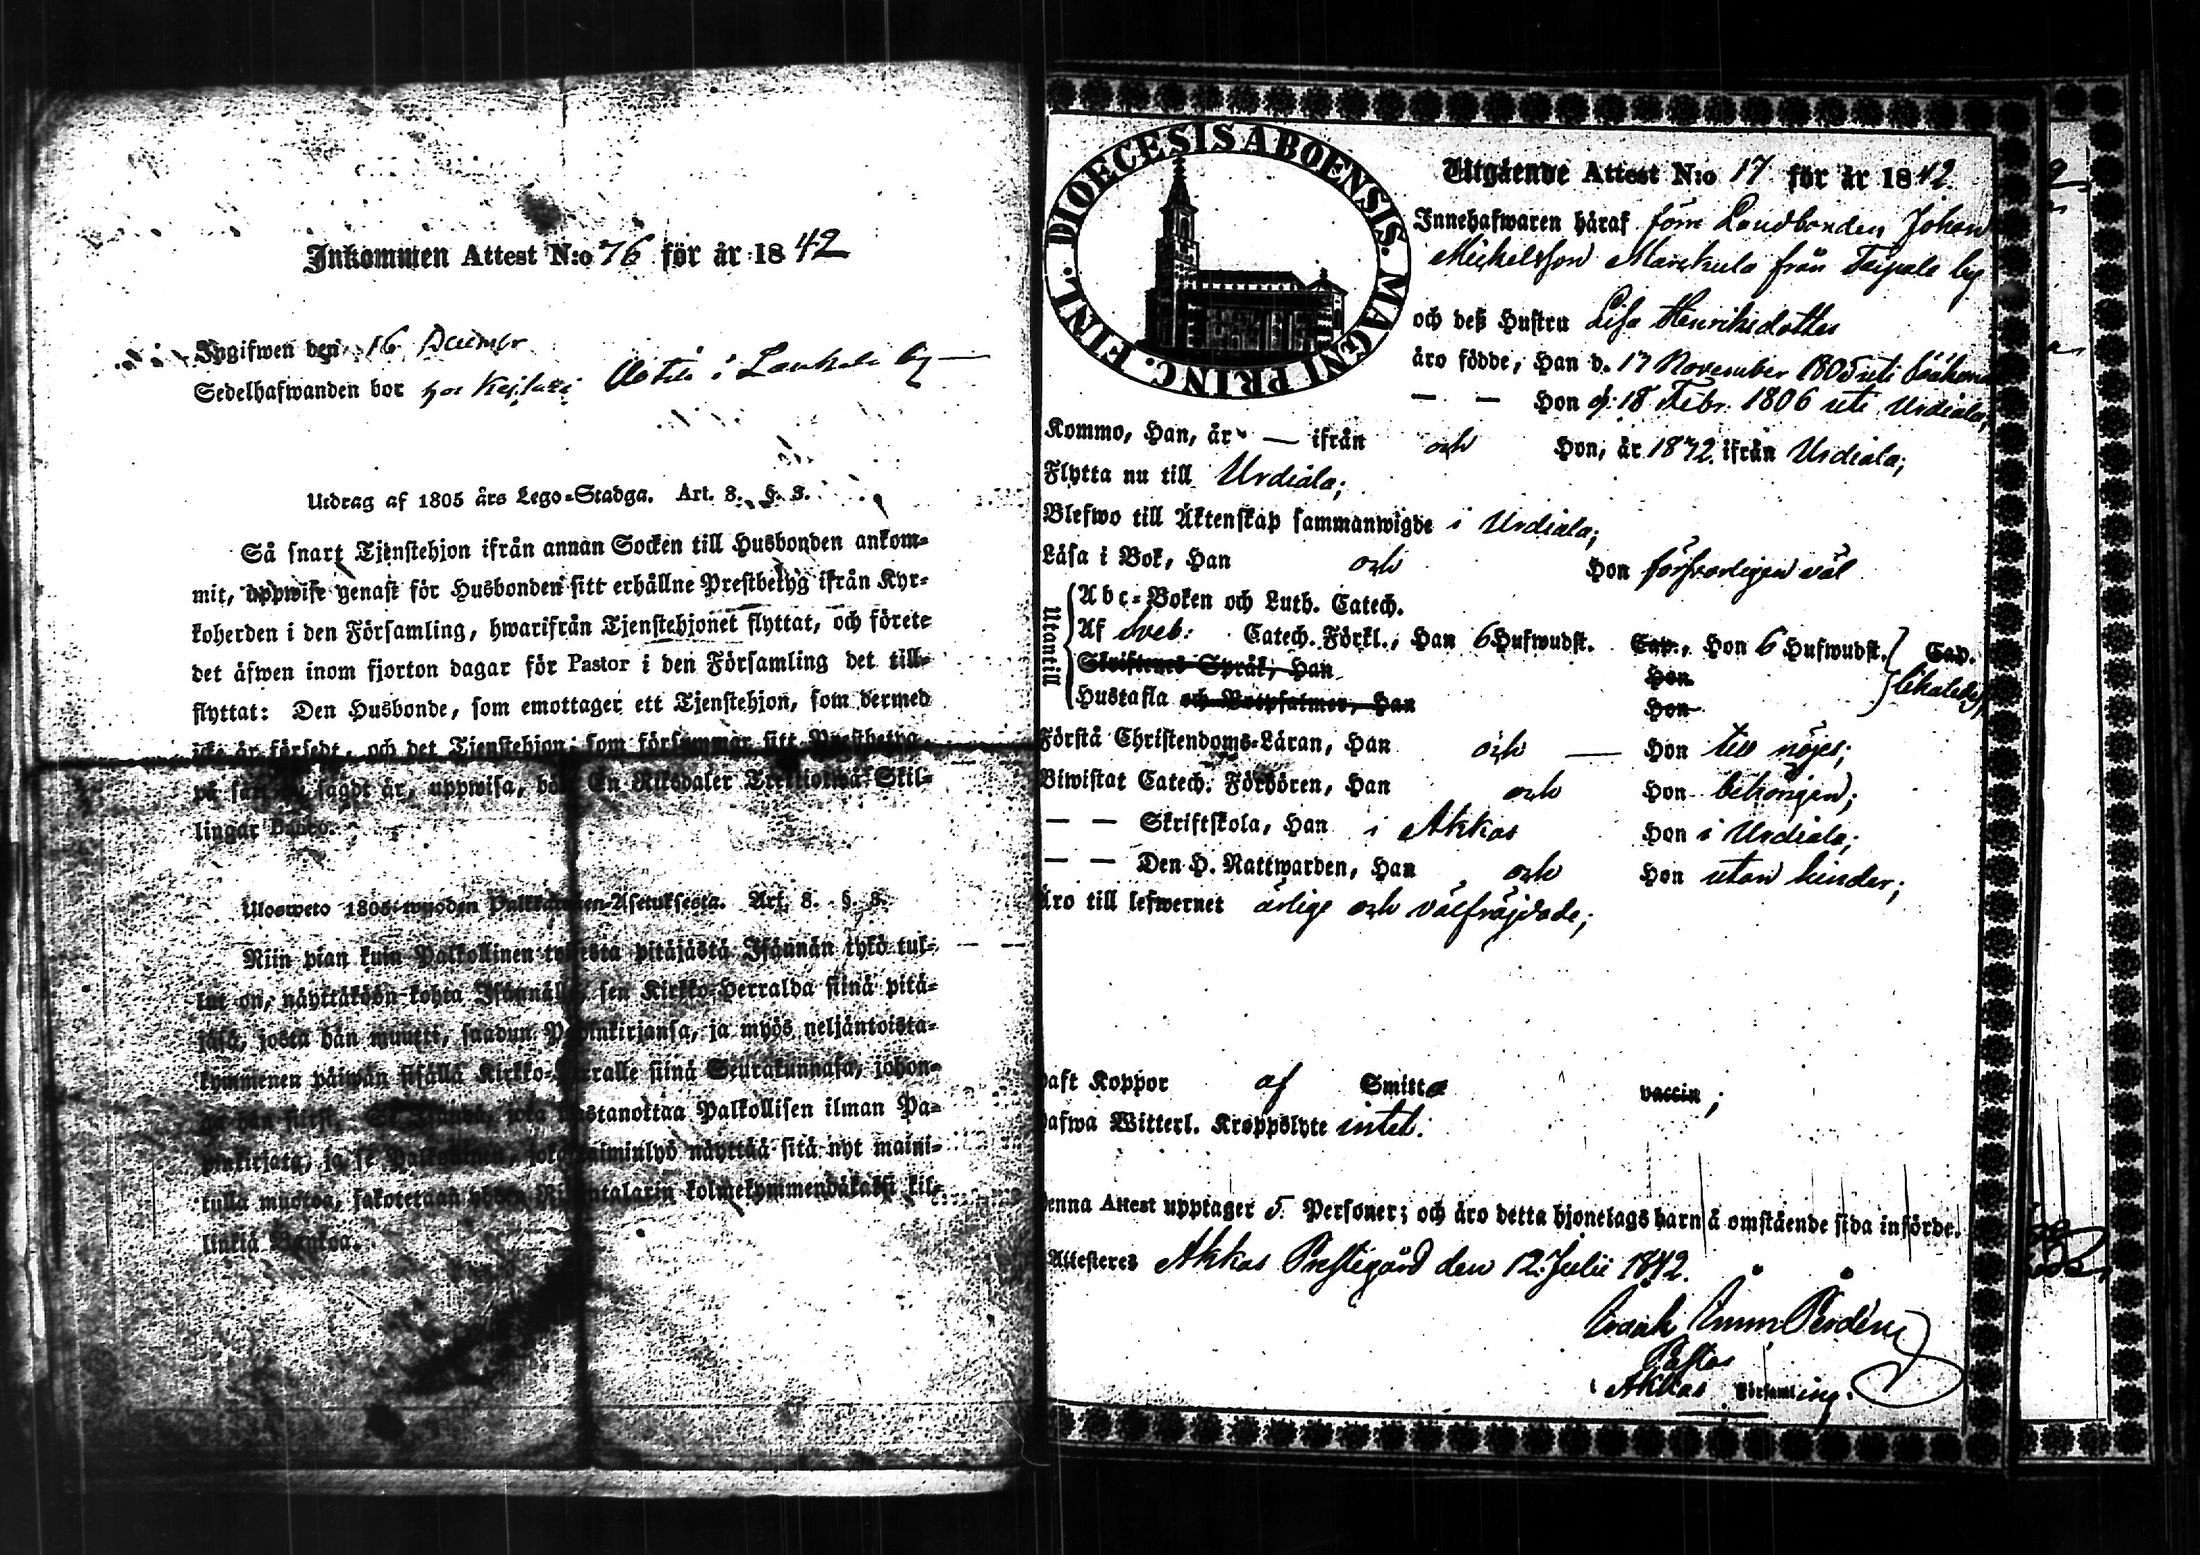 Inkommen Attest N:o 76 för år 1842
Upgifwen den 16 Decembr
Sedelhafwanden bor hos i by
Utdrag af 1805 års Lego-Stadga. Art. 8. §. 3.
Så snart Tjenstehjon ifrån annan Socken till Husbonden ankom-
mit, uppwise genast för Husbonden sitt erhållne Prestbetyg ifrån Kyr-
koherden i den Församling, hwarifrån Tjenstehjonet flyttat, och förete
det äfwen inom fjorton dagar för Pastor i den Församling det till-
flyttat: Den Husbonde, som emottager ett Tjenstehjon, som dermed
icke är försedt, och det Tjenstehjon, som försummar sitt Prestbetyg
sagdt är, uppwisa, En Riksdaler Trettiotwå Skil-
lingar Banco.
Ulosweto 1805 wuoden Palkkawäen-Asetuksesta. Art. 8. §. 3.
Niin pian kuin Palkollinen toisesta pitäjästä Isännän tykö tul-
lut on, näyttäköön kohta Isännälle, sen Kirkko-Herralda siinä pitä-
jäsä, josta hän muutti, saadun Papinkirjansa, ja myös neljäntoista-
kymmenen päiwän sisällä Kirkko-Herralle siinä Seurakunnasa, johon-
wastanottaa Palkollisen ilman Pa-
pinkirjata, ja se Palkollinen, joka laiminlyö näyttää sitä nyt maini-
tulla muotoa, sakotetaan yhden Riksintalarin kolmekymmendäkaksi kil-
linkiä Bankoa.
DIOECESIS ABOENSIS. MAGNI PRINC. FINL.
Utgående Attest N:o 17 för år 1842.
Innehafwaren häraf förre Landbonden Johan
Michelsson från Taipale by
och deß Hustru Lisa Henriksdotter
äro födde, Han d. 17 November 1805 uti
— — Hon d. 18 Febr. 1806 uti Urdiala;
Kommo, Han, år — ifrån och Hon, år 1842. ifrån Urdiala;
Flytta nu till Urdiala;
Blefwo till Äktenskap sammanwigde i Urdiala;
Läsa i Bok, Han och Hon försvarligen väl
Utantill
Abc-Boken och Luth. Catech.
Af Sveb: Catech. Förkl., Han 6 Hufwudst. Cap., Hon 6 Hufwudst. Cap.
Skriftenes Språk, Han Hon
Hustafla och Botpsalmer, Han Hon
Förstå Christendoms-Läran, Han och — Hon till nöjes;
Biwistat Catech. Förhören, Han och Hon behörigen;
— — Skriftskola, Han i Akkas Hon i Urdiala;
— — Den H. Nattwarden, Han och Hon utan hinder;
Äro till lefwernet ärlige och välfräjdade;
Haft Koppor af Smitta vaccin;
Hafwa Witterl. Kroppslyte intet.
Denna Attest upptager 5. Personer; och äro detta hjonelags barn å omstående sida införde.
Attesteres Akkas Prestegård den 12. Julii 1842.
Pastor
i Akkas Församling.